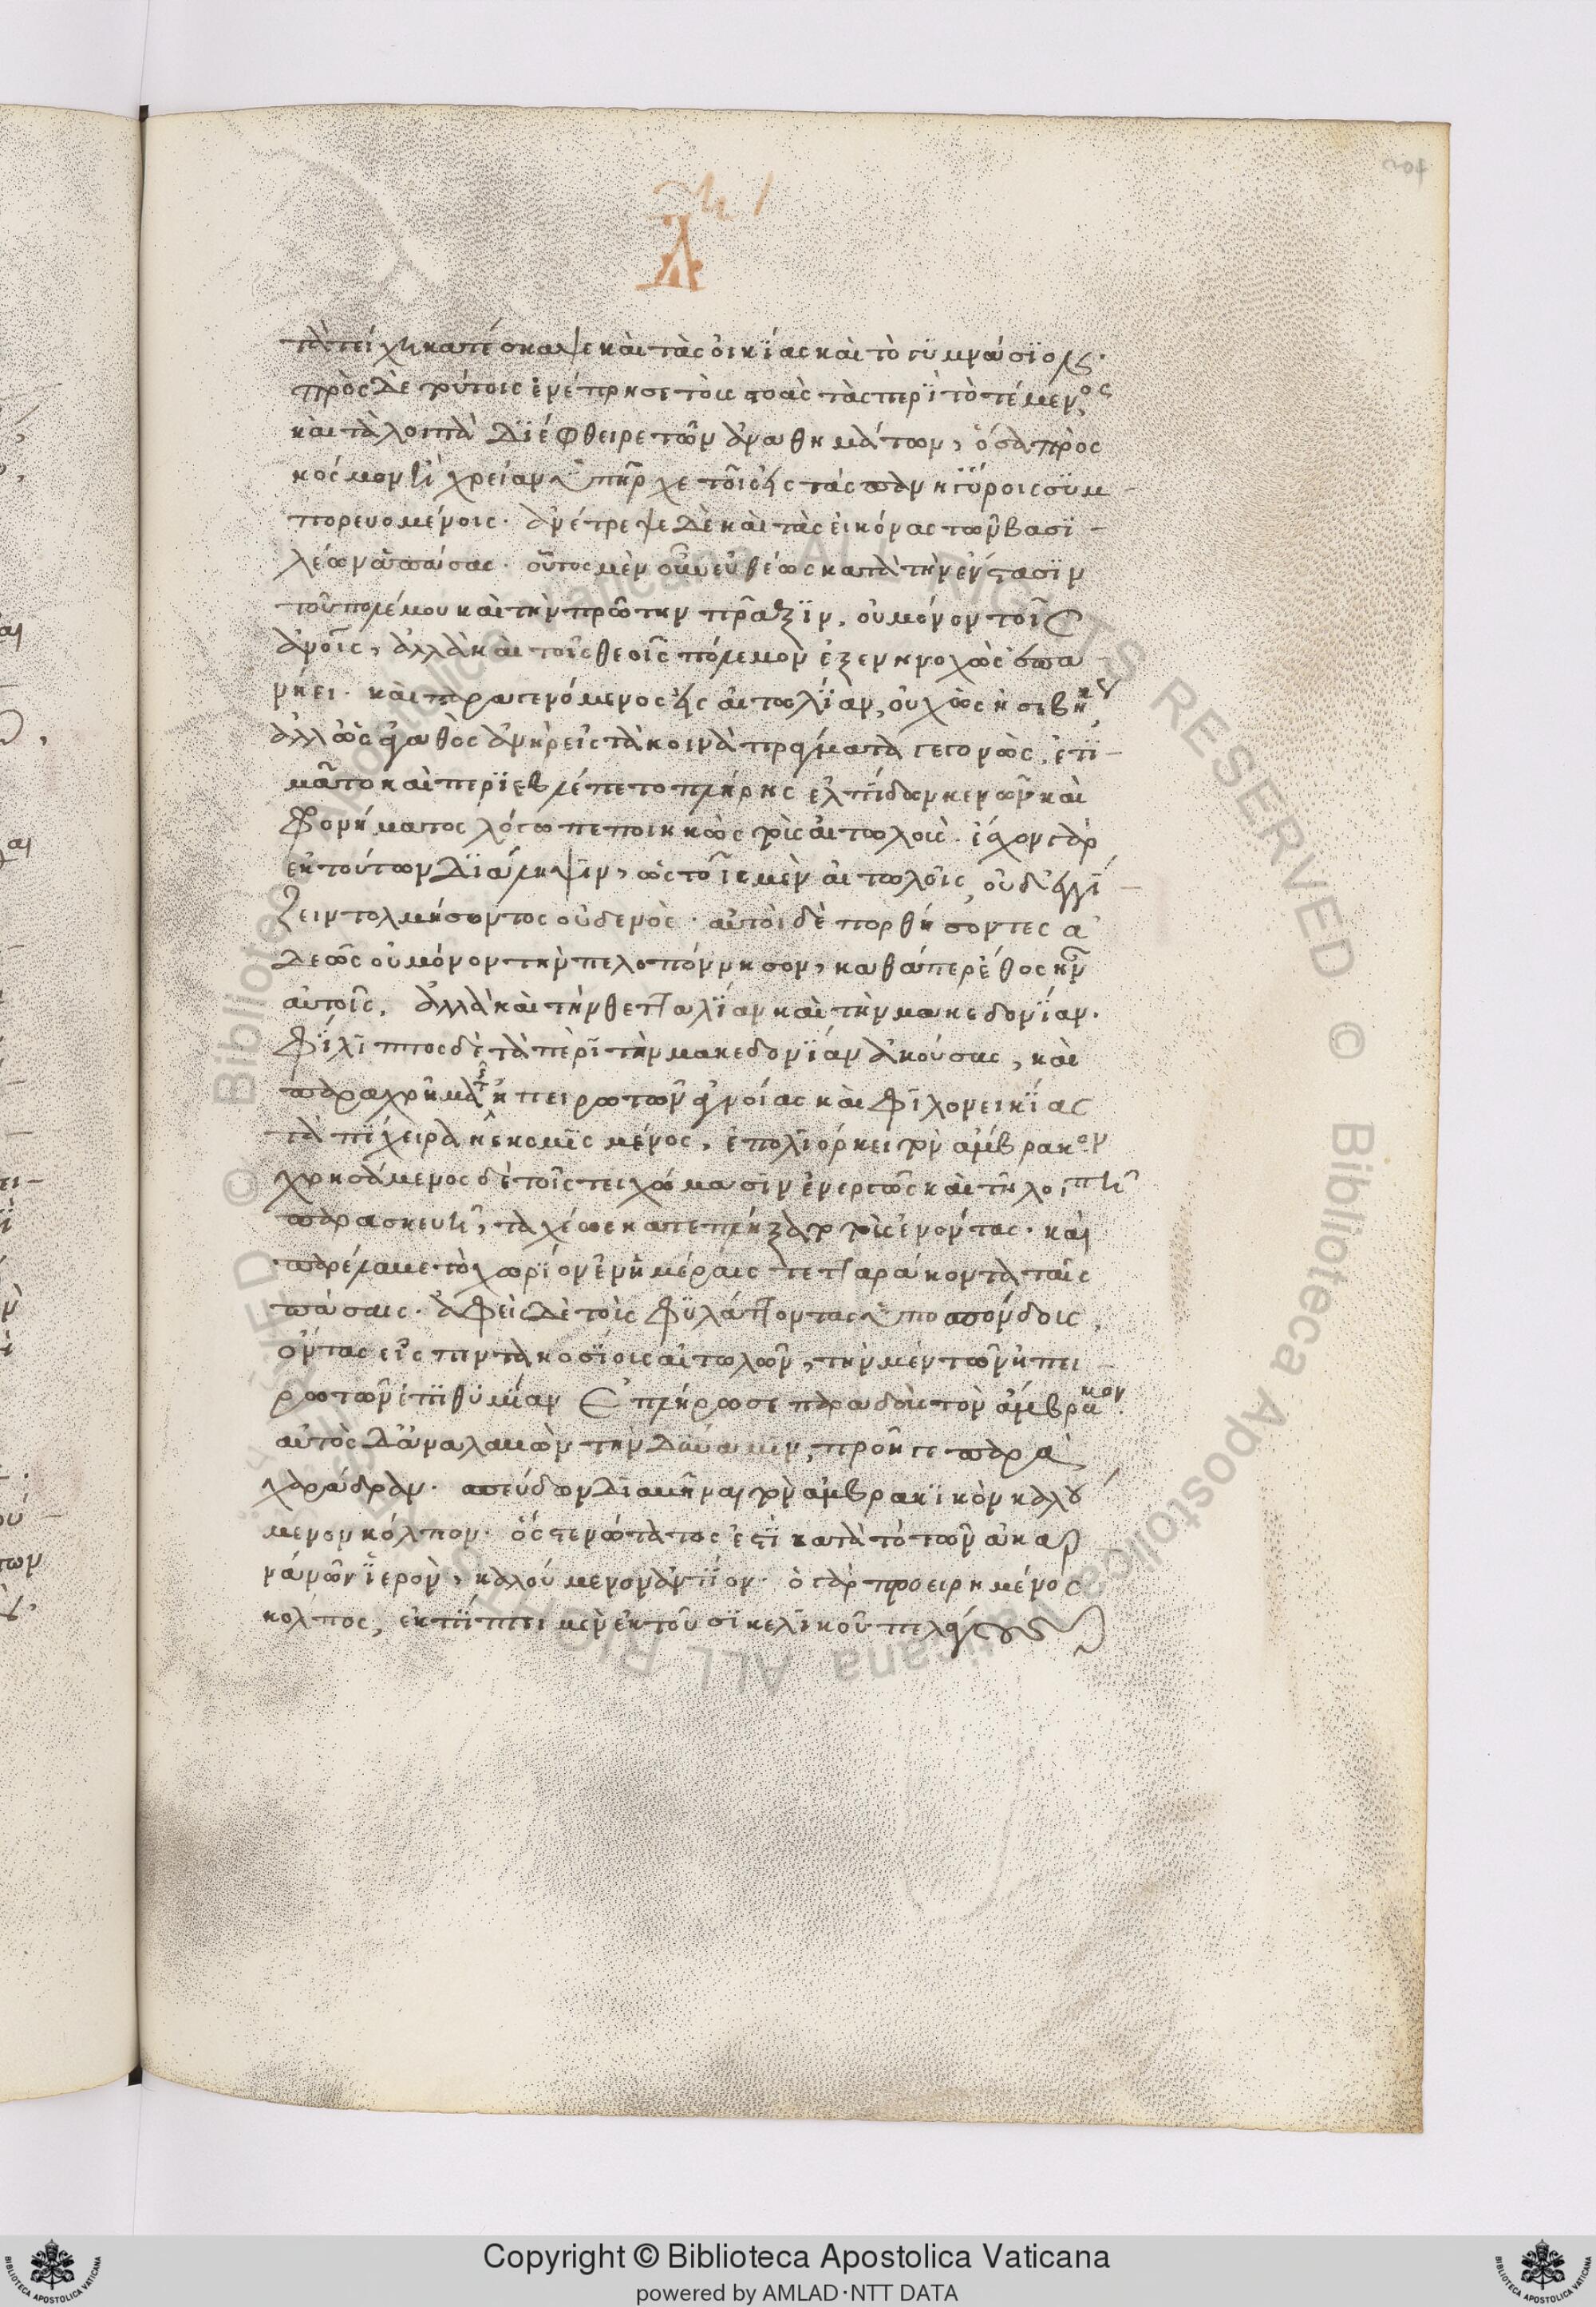 τὰ τείχη κατέσκαψε καὶ τὰς οἰκίας καὶ τὸ γυμνάσιον·
πρὸς δὲ τούτοις ἐνέπρησε τὰς στοὰς τὰς περὶ τὸ τέμενος
καὶ τὰ λοιπὰ διέφθειρε τῶν ἀναθημάτων, ὅσα πρὸς
κόσμον ἢ χρείαν ὑπῆρχε τοῖς εἰς τὰς πανηγύρεις συμ-
πορευομένοις· ἀνέτρεψε δὲ καὶ τὰς εἰκόνας τῶν βασι-
λέων ἁπάσας· οὗτος μὲν οὖν εὐθέως κατὰ τὴν ἔνστασιν
τοῦ πολέμου καὶ τὴν πρώτην πρᾶξιν, οὐ μόνον τοῖς
ἀνοις, ἀλλὰ καὶ τοῖς θεοῖς πόλεμον ἐξενηνοχὼς ἐπα
νήει· καὶ παραγενόμενος εἰς αἰτωλίαν, οὐχ ὡς ἠσεβηκὼς
ἀλλ ὡς ἀγαθὸς ἀνὴρ εἰς τὰ κοινὰ πράγματα γεγονὼς, ἐτι-
μᾶτο καὶ περιεβλέπετο πλήρης ἐλπίδων κενῶν καὶ
φρονήματος λόγω πεποιηκὼς τοὺς αἰτωλούς· ἔσχον γὰρ
ἐκ τούτων διάληψιν, ὡς τῆς μὲν αἰτωλίας οὐδ ἐγγί-
ζειν τολμήσοντος οὐδενὸς· αὐτοὶ δὲ πορθήσοντες ἀ
δεῶς οὐ μόνον τὴν πελοπόννησον, καθάπερ ἔθος ἦν
αὐτοῖς, ἀλλὰ καὶ τὴν θετταλίαν καὶ τὴν μακεδονίαν·
φίλιππος δὲ τὰ περὶ τὴν μακεδονίαν ἀκούσας, καὶ
παραχρῆμα τῆς ἠπειρωτῶν ἀγνοίας καὶ φιλονεικίας
τἀπίχειρα κεκομισμένος, ἐπολιόρκει τὸν ἄμβρακον
χρησάμενος δὲ τοῖς τε χώμασιν ἐνεργῶς καὶ τῆ λοιπῆ
παρασκευῆ, ταχέως κατεπλήξατο τοὺς ἐνόντας· καὶ
παρέλαβε τὸ χωρίον ἐν ἡμέραις τετταράκοντα ταῖς
πάσαις· ἀφεὶς δὲ τοὺς φυλάττοντας ὑποσπόνδους,
ὄντας εἰς πεντακοσίους αἰτωλῶν, τὴν μὲν τῶν ἠπει
ρωτῶν ἐπιθυμίαν ἐπλήρωσε παραδοὺς τὸν ἄμβρακον·
αὐτὸς δ ἀναλαβὼν τὴν δύναμιν, προῆγε παρὰ
χαράδραν· σπεύδων διαβῆναι τὸν ἀμβρακικὸν καλού
μενον κόλπον· ὃς στενώτατος ἐστὶ κατὰ τὸ τῶν ἀκαρ
νάνων ἱερὸν, καλούμενον ἄκτιον· ὁ γὰρ προειρημένος
κόλπος, ἐκπίπτει μὲν ἐκ τοῦ σικελικοῦ πελάγους